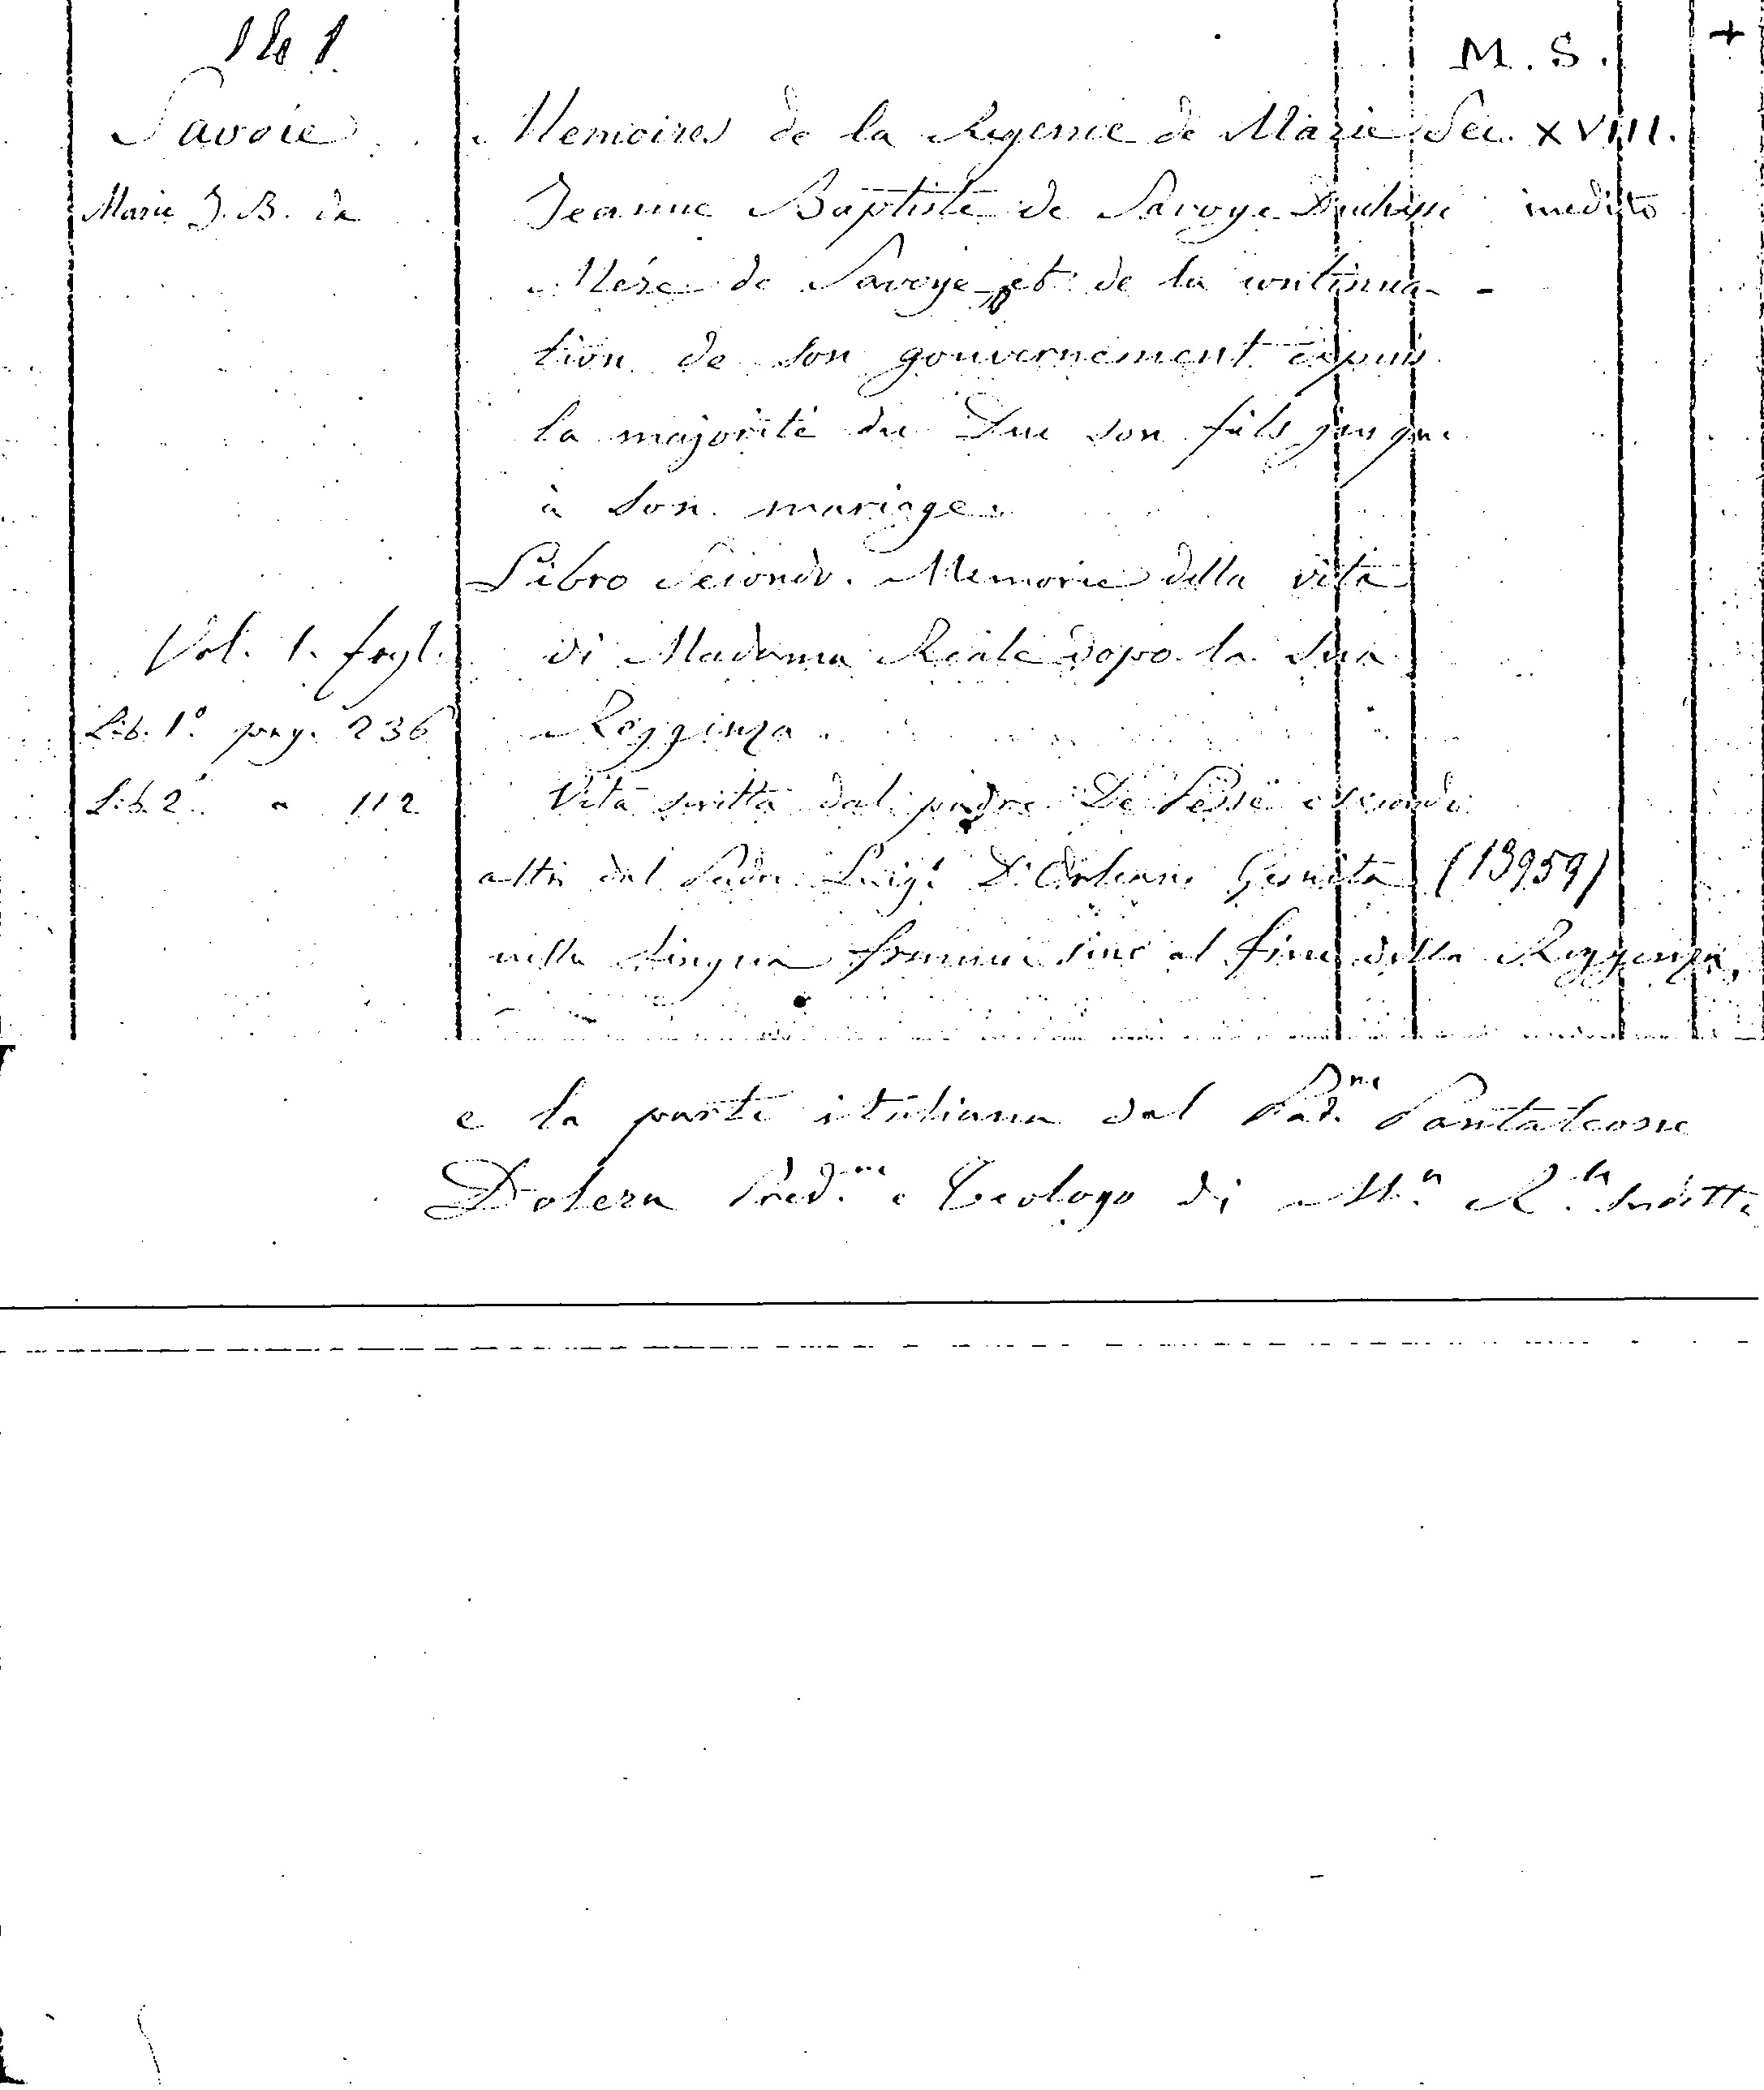 M. S. +
Savoie Memoires de la Regence de Marie Sec. XVIII.
Marie J. B. de Jeanne Baptiste de Savoye Duchesse inedito
Mére de Savoye et de la continua-
tion de son gouvernement depuis
la majorité du Duc son fils jusque
à son mariage.
Libro Secondo. Memorie della vita
Vol. 1. fogl. di Madama Reale dopo la sua
Lib. 1º pag. 236 Reggenza.
Lib. 2º " 112 Vita scritta dal padre De e secondo
altri dal Padre Luigi D'Orleans Gesuita (13959)
nella lingua francese sino al fine della Reggenza,
e la parte italiana dal Pad.ne Pantaleone
Dolera Pred.re e Teologo di M.a R.le suditta